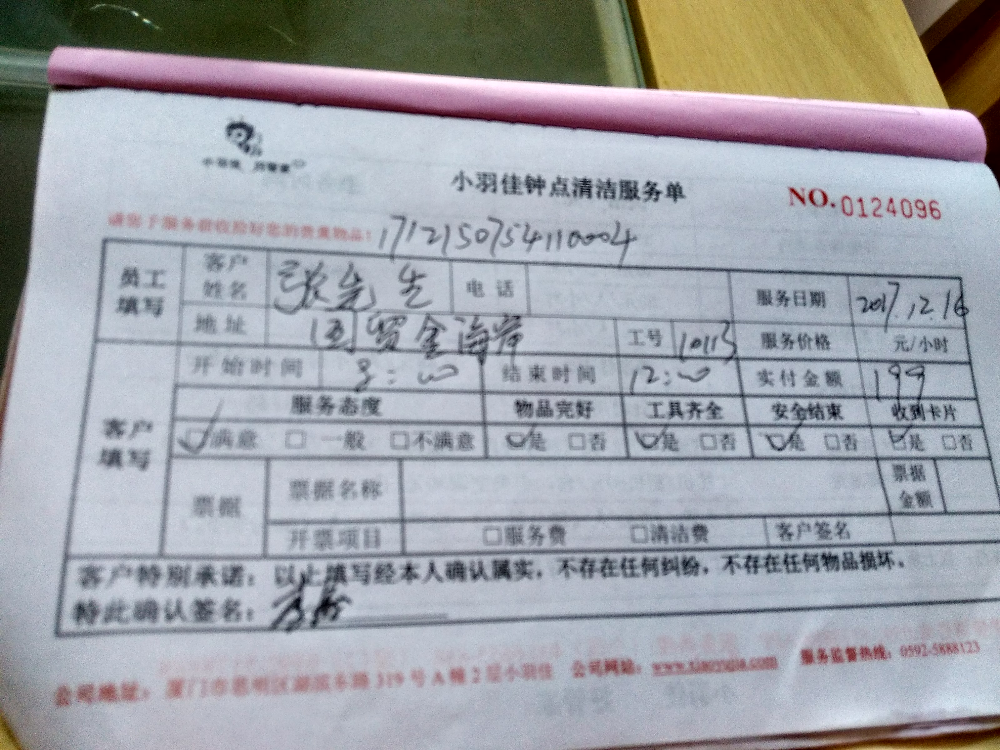 小羽佳钟点清洁服务单 NO.0124096
请客户服务前收捡好您的贵重物品! 1712150754110004
员工填写 客户姓名 张先生 电话 服务日期 2017.12.16
地址 国贸金海岸 工号 10113 服务价格 元/小时
开始时间 8:00 结束时间 12:00 实付金额 199
客户填写 服务态度 物品完好 工具齐全 安全结束 收到卡片
☑满意 □一般 □不满意 ☑是 □否 ☑是 □否 ☑是 □否 ☑是 □否
票据 票据名称 票据金额
开票项目 □服务费 □清洁费 客户签名
客户特别承诺:以上填写经本人确认属实,不存在任何纠纷,不存在任何物品损坏。
特此确认签名:
公司地址:厦门市思明区湖滨东路319号A幢2层小羽佳 公司网站:www.xiaoyujia.com 服务监督热线:0592-5888123